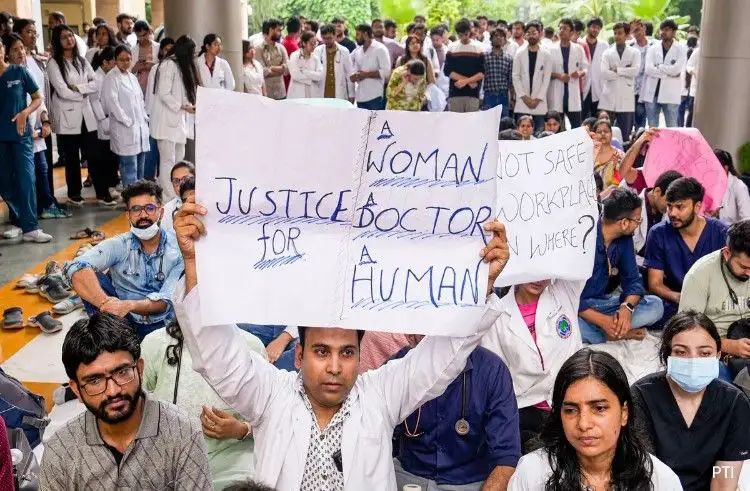 JUSTICE
for
A
WOMAN
A
DOCTOR
A
HUMAN
NOT SAFE
WORKPLACE
WHERE?
PTI